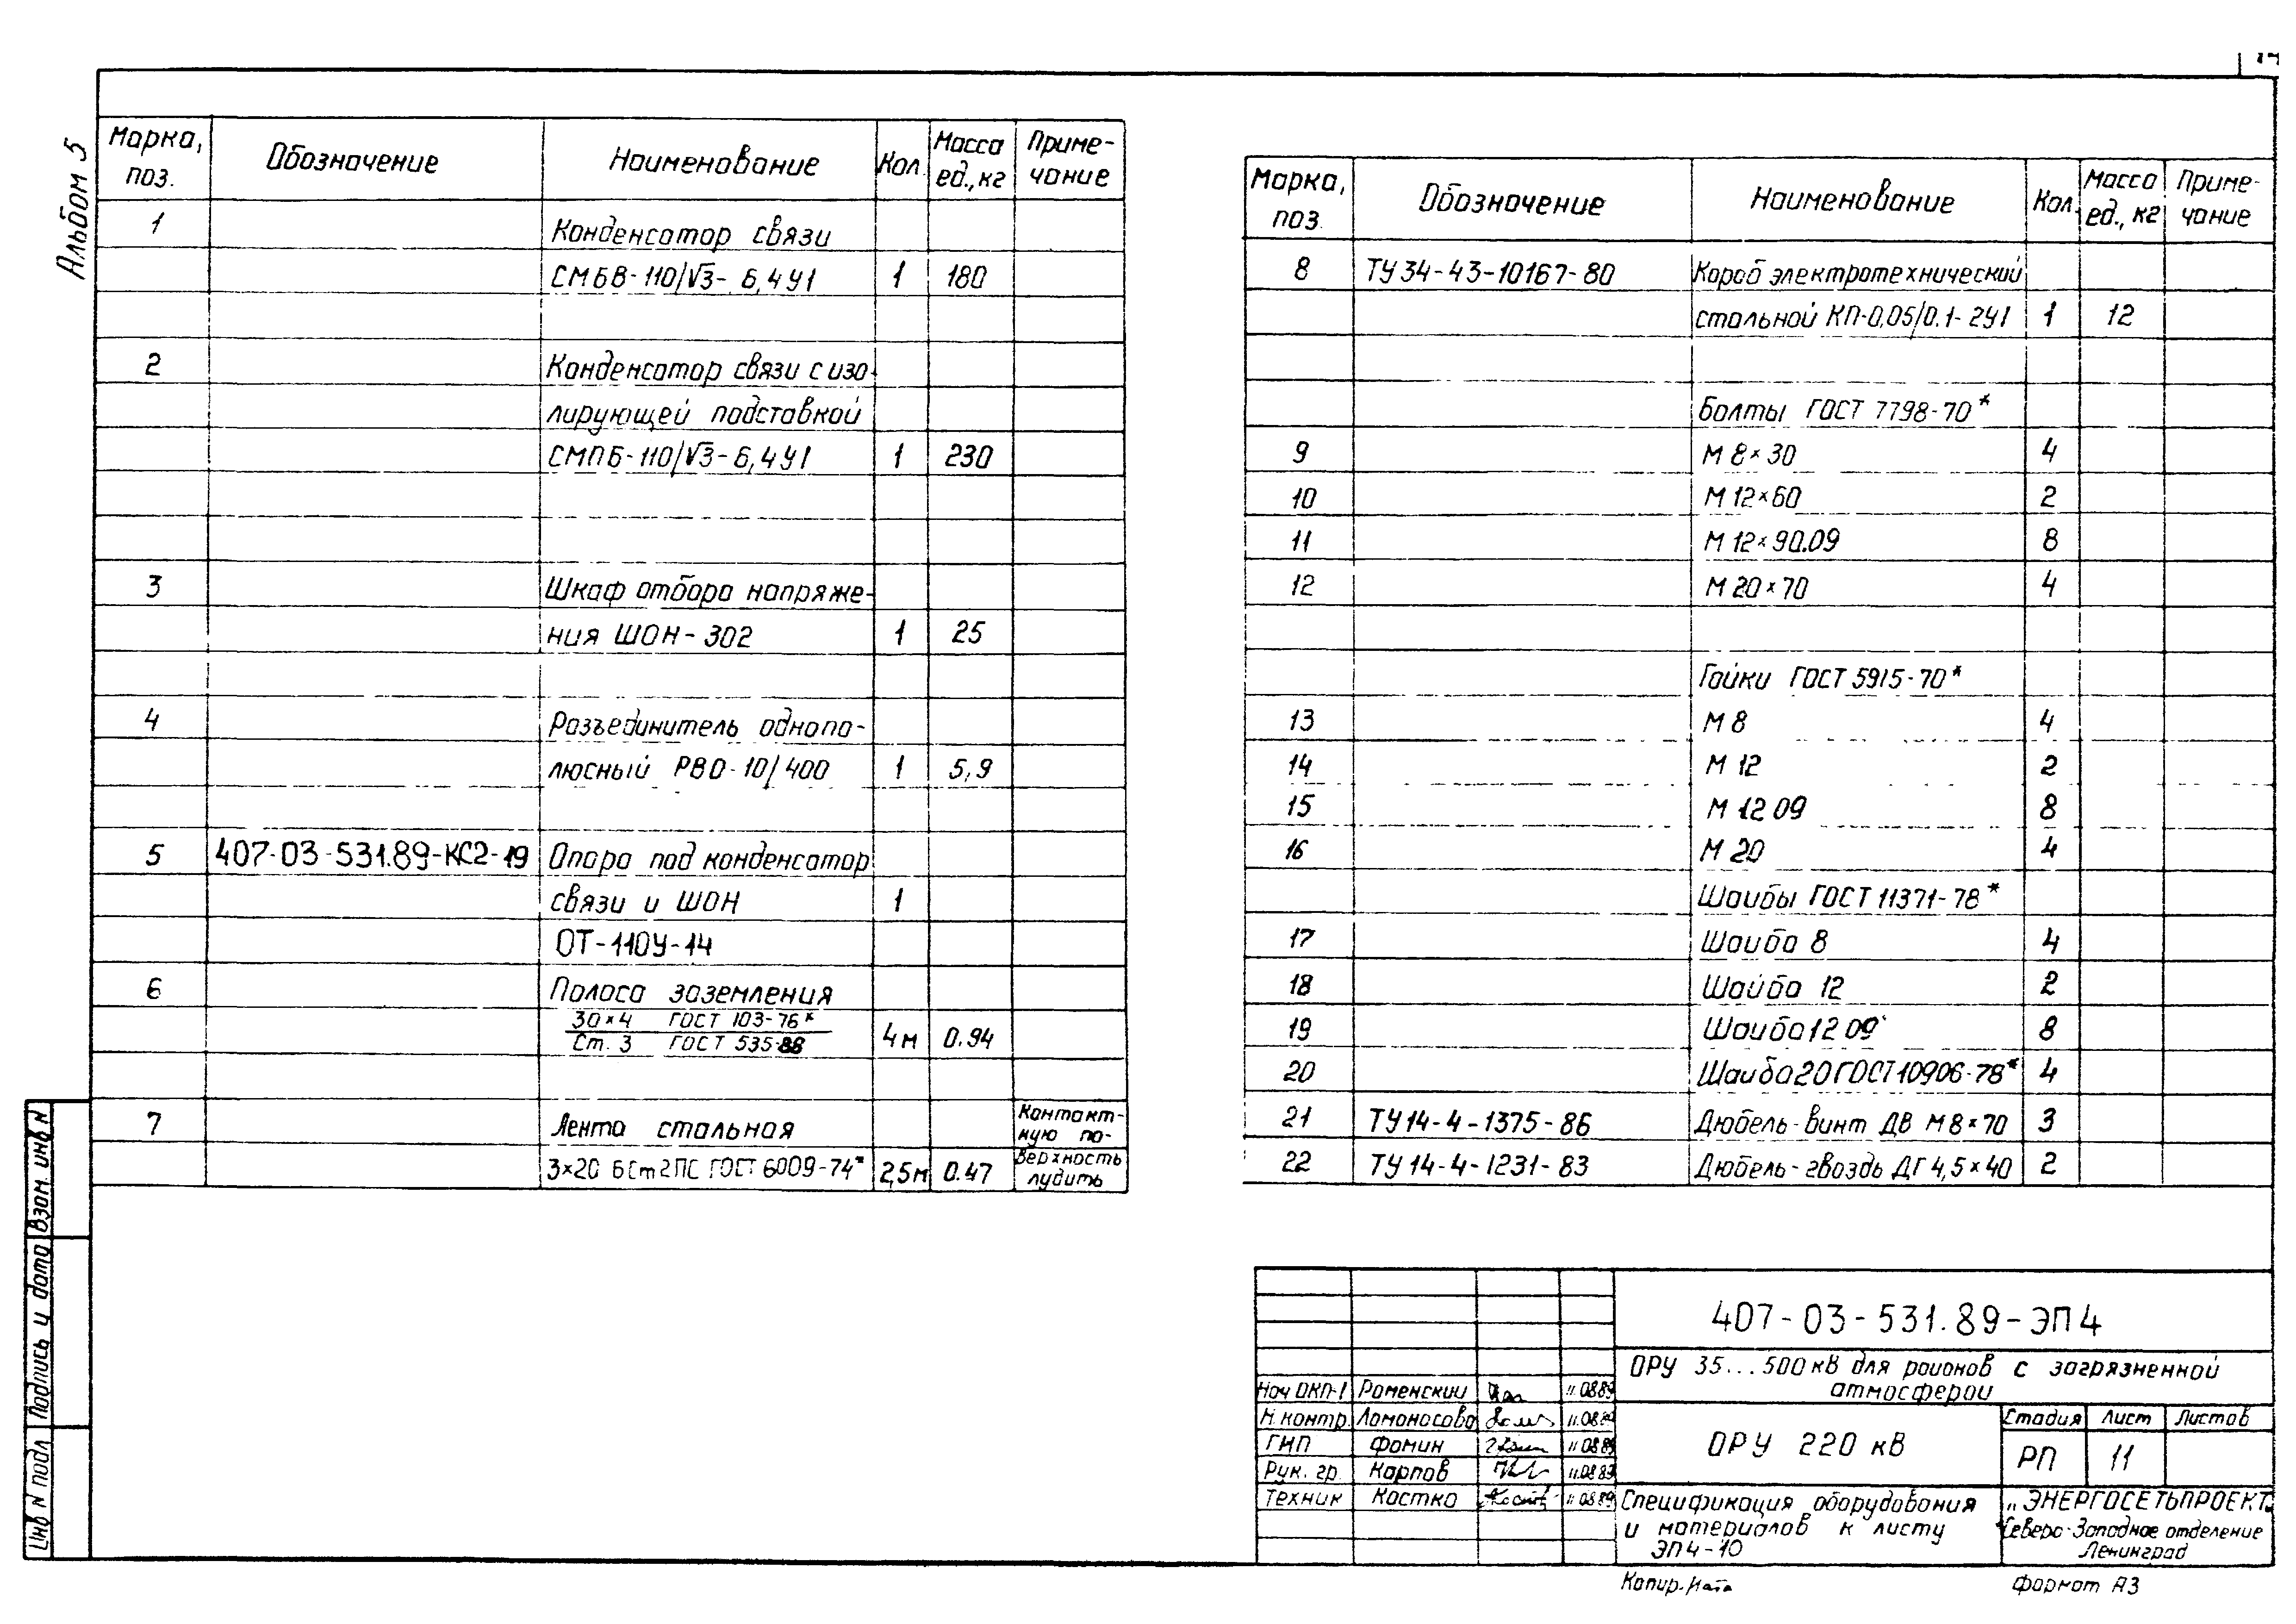 Альбом 5
Марка, поз. Обозначение Наименование Кол. Масса ед., кг Приме-чание
1 Конденсатор связи
СМБВ-110/√3-6,4У1 1 180
2 Конденсатор связи с изо-
лирующей подставкой
СМПБ-110/√3-6,4У1 1 230
3 Шкаф отбора напряже-
ния ШОН-302 1 25
4 Разъединитель однопо-
люсный РВО-10/400 1 5,9
5 407-03-531.89-КС2-19 Опора под конденсатор
связи и ШОН 1
ОТ-110У-14
6 Полоса заземления
30×4 ГОСТ 103-76*
Ст. 3 ГОСТ 535-88 4м 0.94
7 Лента стальная Контакт-ную по-
3×20 БСт2ПС ГОСТ 6009-74* 2,5м 0.47 верхность лудить
Марка, поз. Обозначение Наименование Кол. Масса ед., кг Приме-чание
8 ТУ34-43-10167-80 Короб электротехнический
стальной КП-0,05/0.1-2У1 1 12
Болты ГОСТ 7798-70*
9 М 8×30 4
10 М 12×60 2
11 М 12×90.09 8
12 М 20×70 4
Гайки ГОСТ 5915-70*
13 М 8 4
14 М 12 2
15 М 12 09 8
16 М 20 4
Шайбы ГОСТ 11371-78*
17 Шайба 8 4
18 Шайба 12 2
19 Шайба 12 09 8
20 Шайба 20 ГОСТ 10906-78* 4
21 ТУ14-4-1375-86 Дюбель-винт ДВ М8×70 3
22 ТУ14-4-1231-83 Дюбель-гвоздь ДГ 4,5×40 2
Инв N подл Подпись и дата Взам. инв N
407-03-531.89-ЭП4
ОРУ 35...500 кВ для районов с загрязненной
атмосферой
Нач ОКП-1 Роменский 11.08.89
Н.контр. Ломоносова 11.08.89
ГИП Фомин 11.08.89
Рук. гр. Карпов 11.08.89
Техник Костко 11.08.89
ОРУ 220 кВ
Стадия Лист Листов
РП 11
Спецификация оборудования
и материалов к листу
ЭП4-10
„ЭНЕРГОСЕТЬПРОЕКТ"
Северо-Западное отделение
Ленинград
Копир.
Формат А3